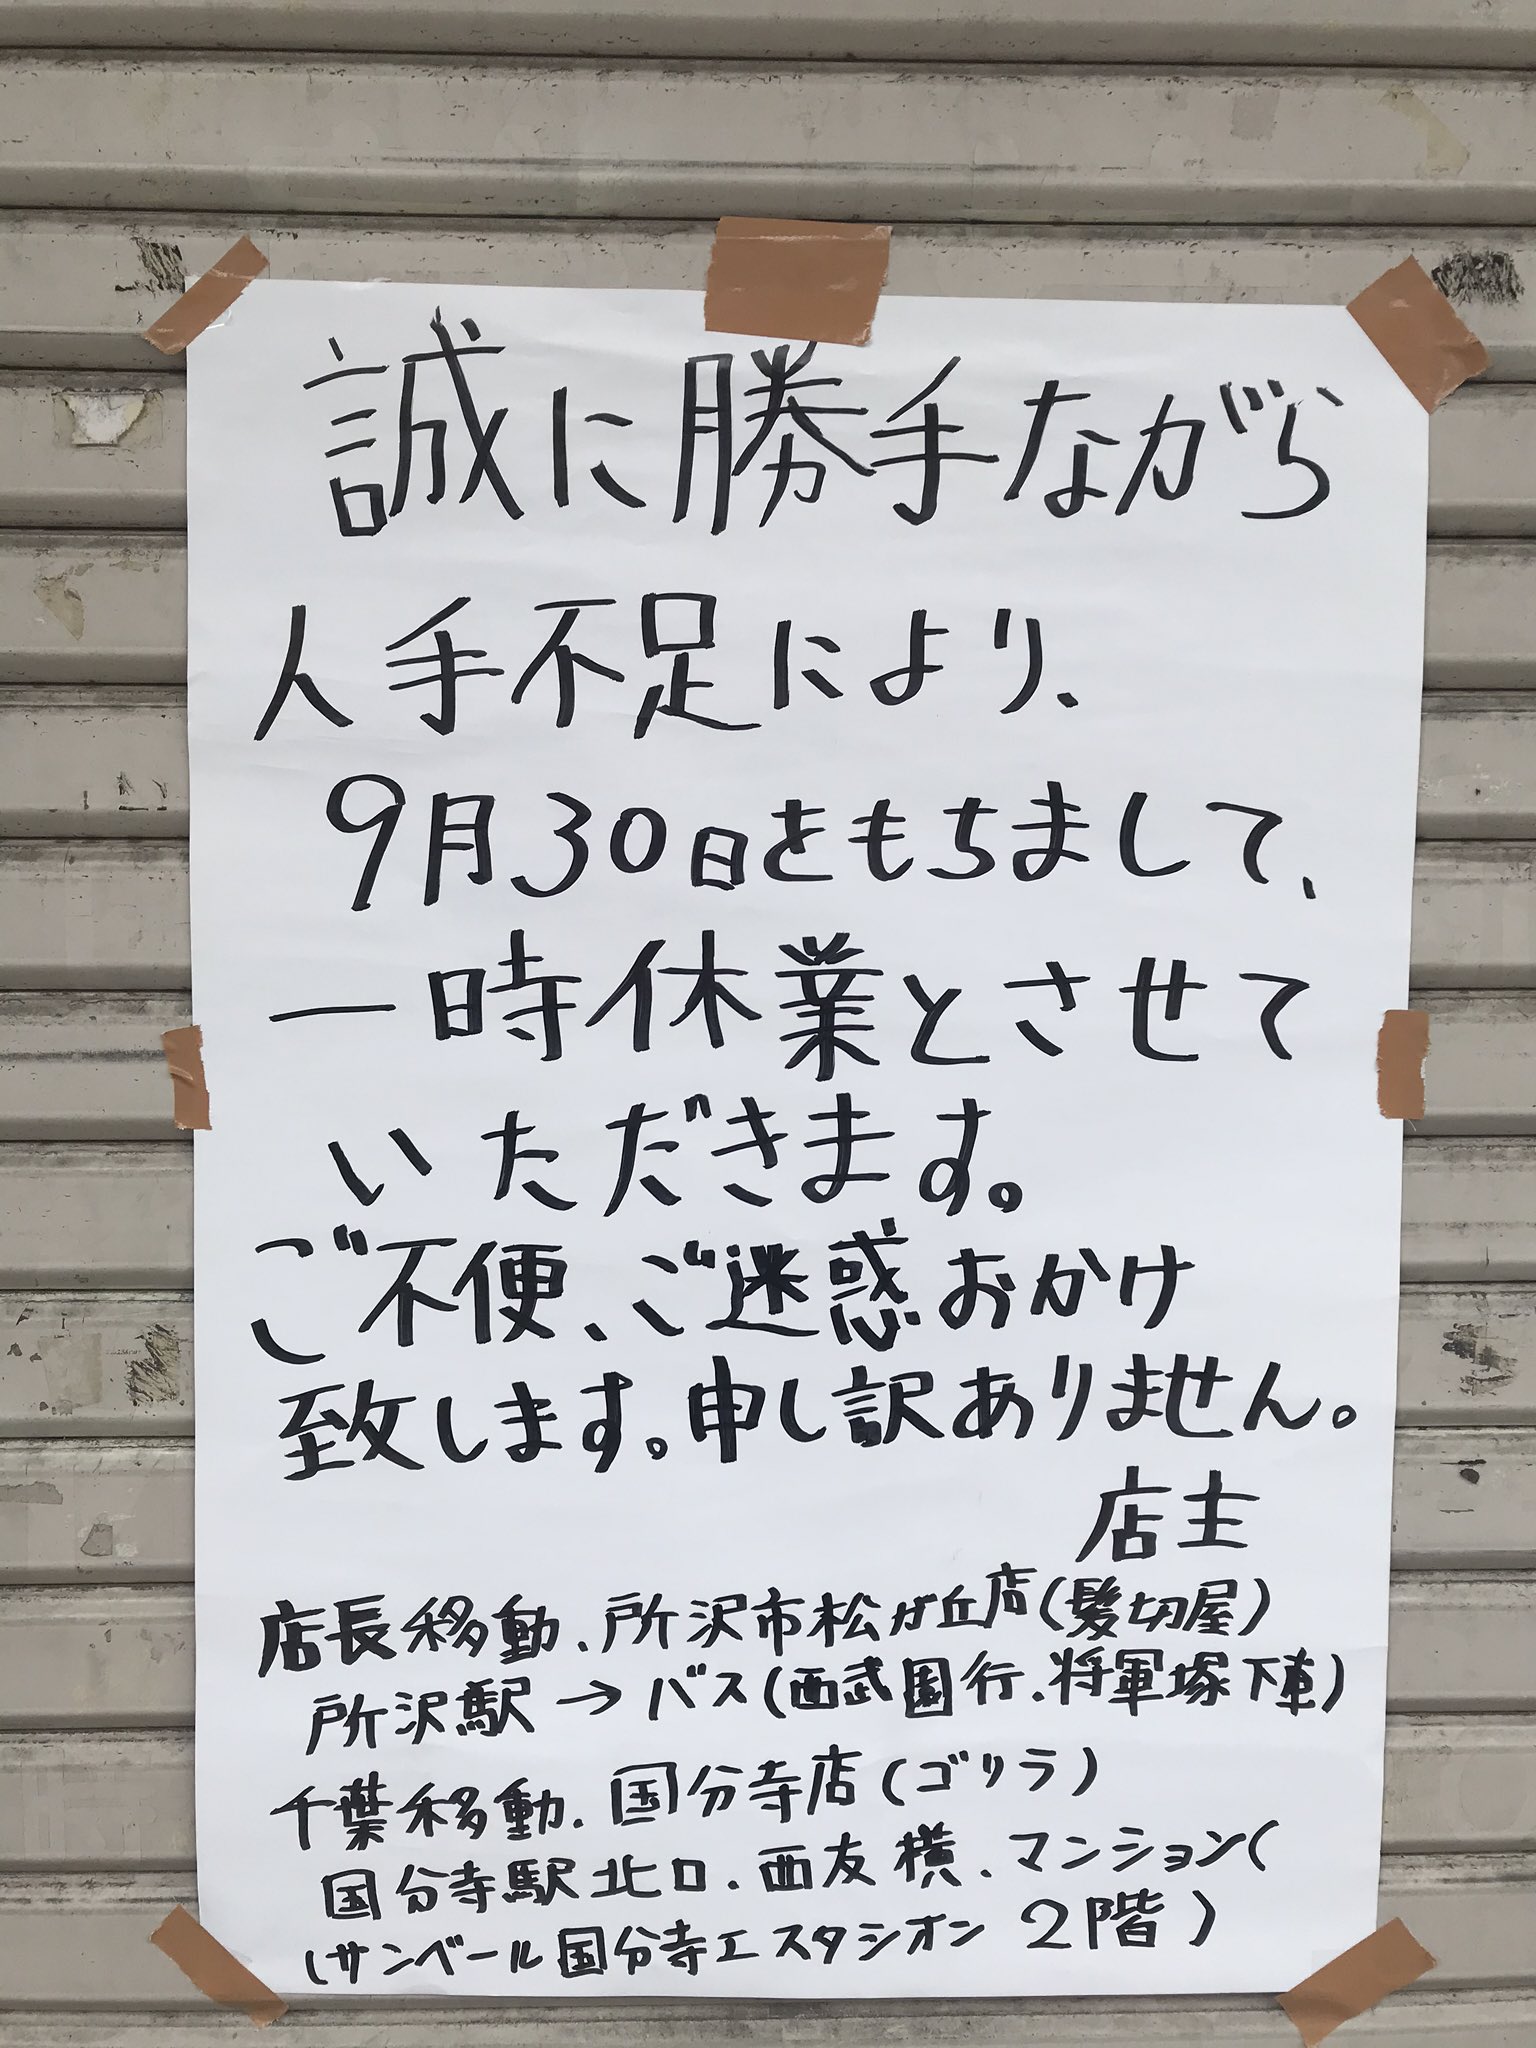 誠に勝手ながら
人手不足により、
9月30日をもちまして、
一時休業とさせて
いただきます。
ご不便、ご迷惑おかけ
致します。申し訳ありません。
店主
店長移動、所沢市松が丘店(髪切屋)
所沢駅→バス(西武園行、将軍塚下車)
千葉移動、国分寺店(ゴリラ)
国分寺駅北口、西友横、マンション(
(サンベール国分寺エスタシオン 2階)